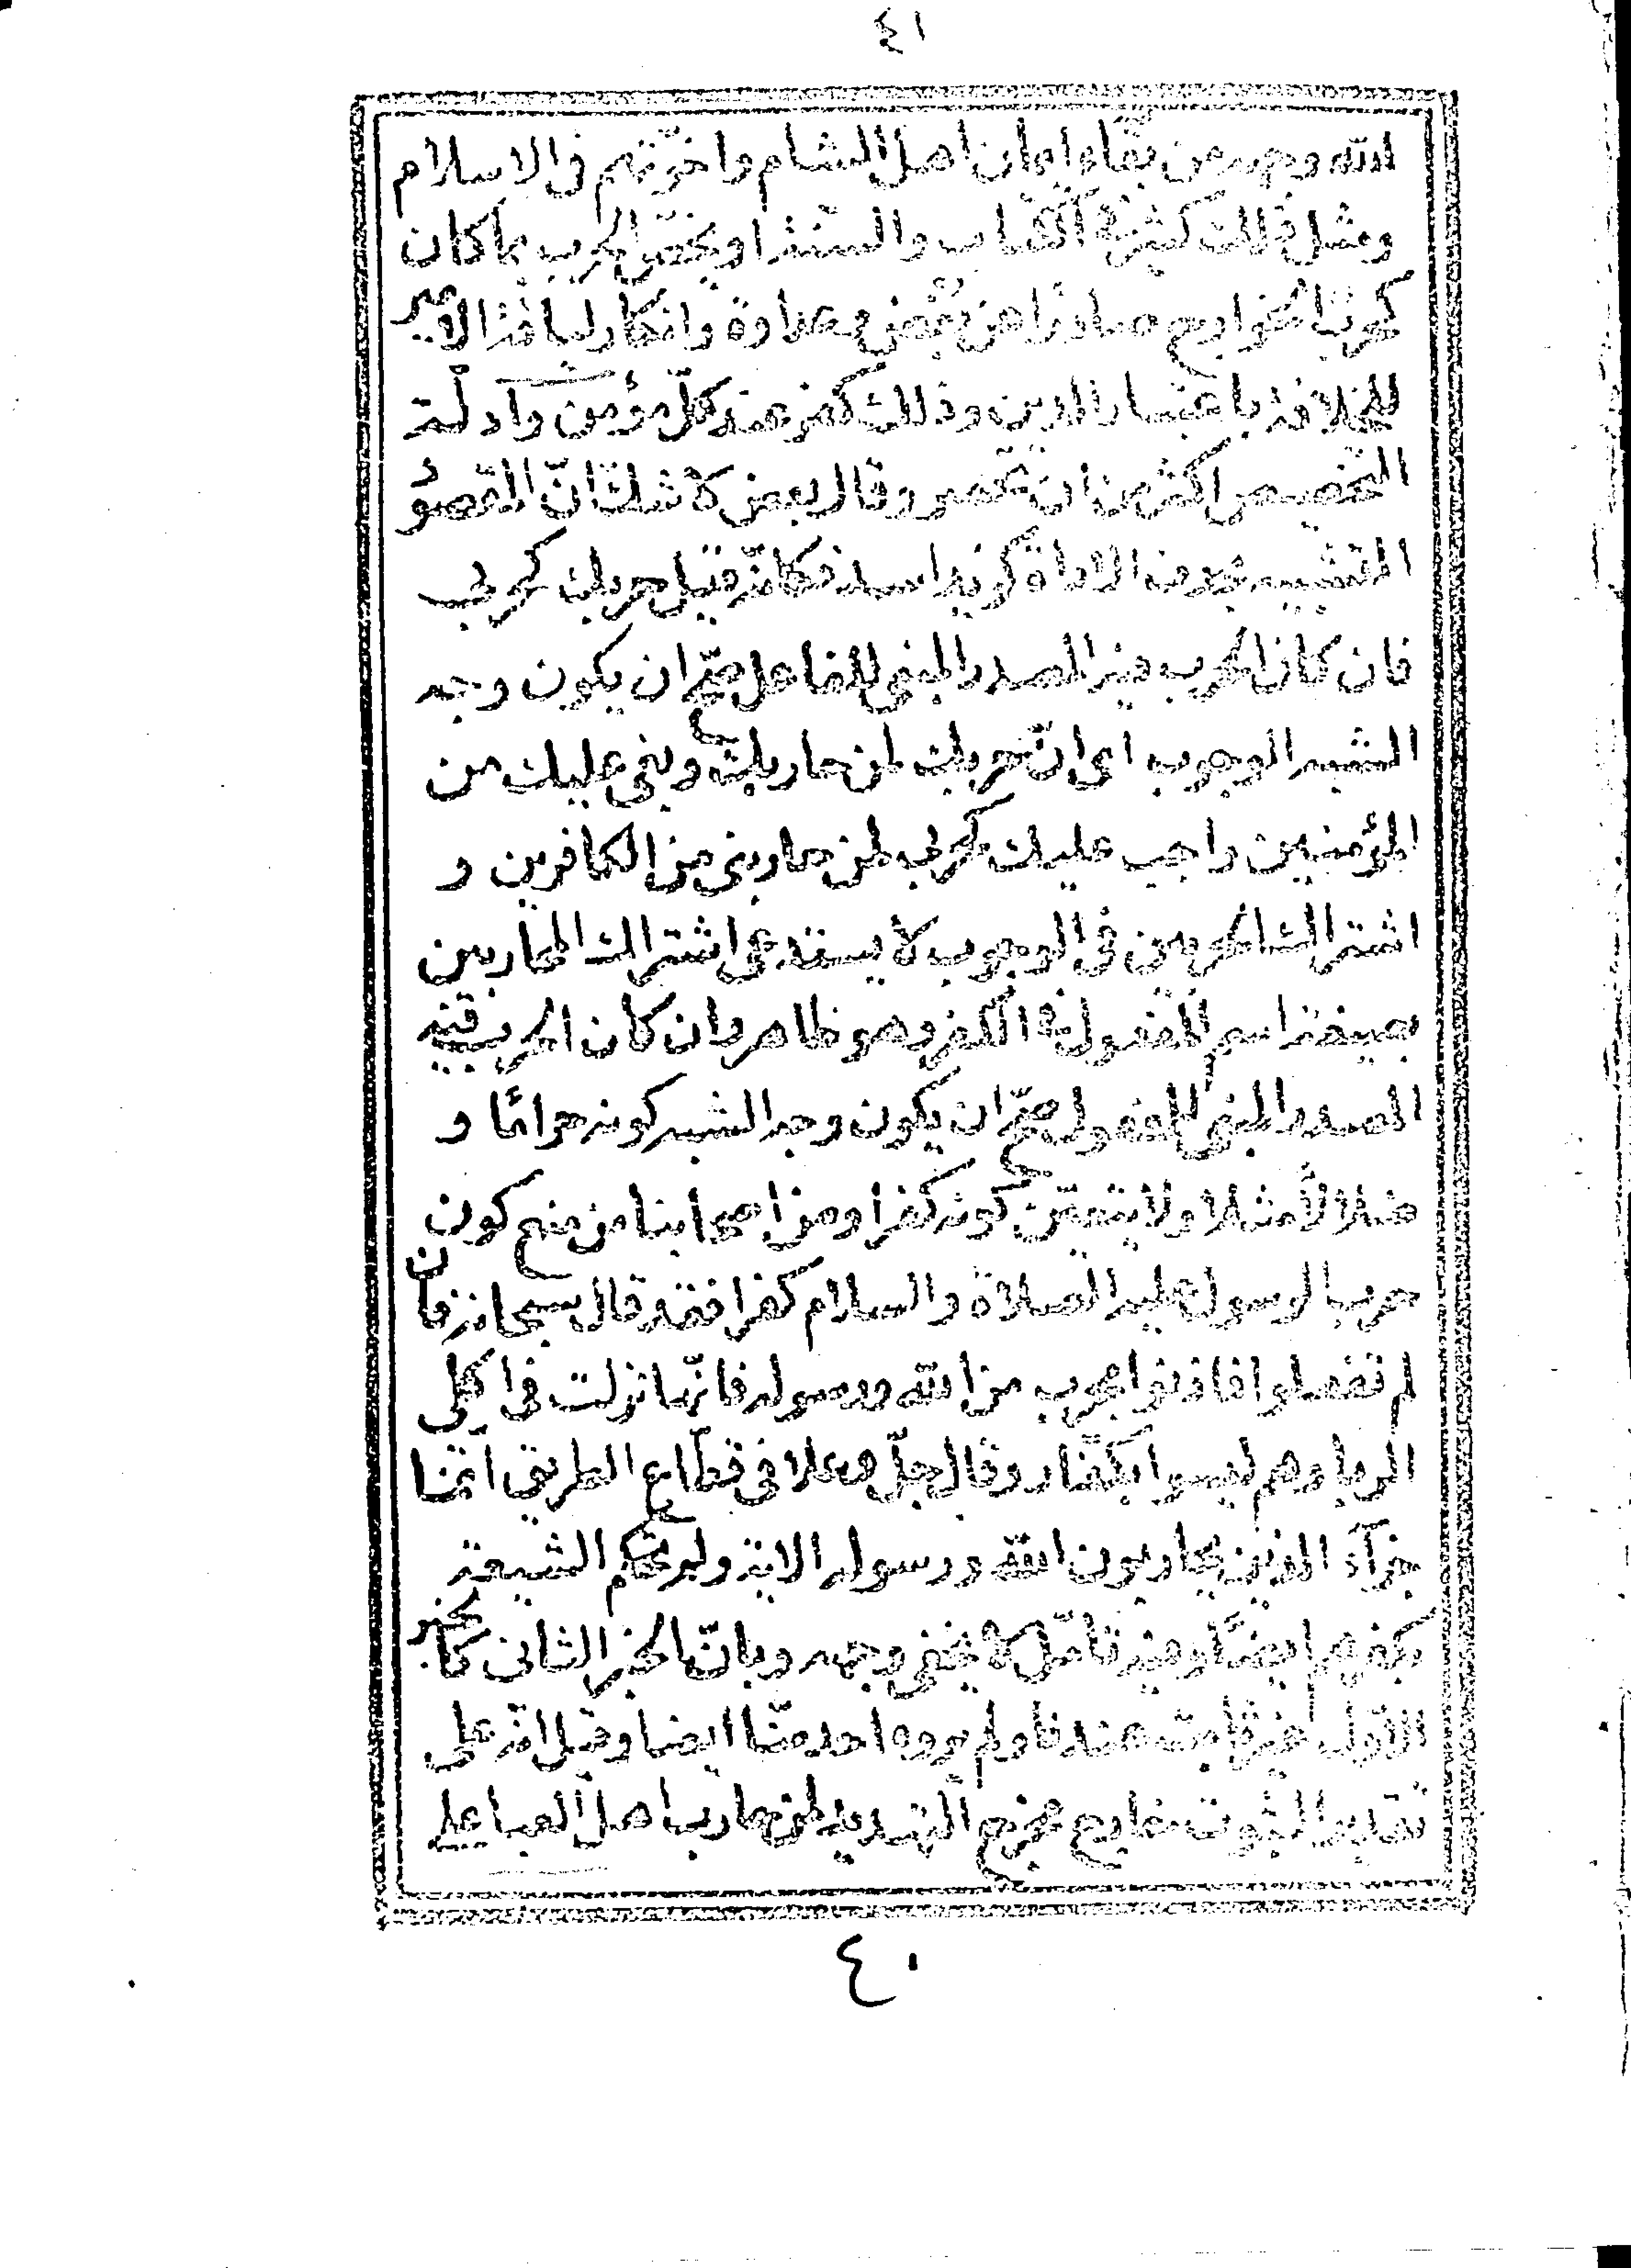 ٤١
الله وجهه من بقاء ايمان اهل الشام واخوّتهم في الاسلام
ومثل ذلك كثير في الكتاب والسنة او يخصّ الحرب بما كان
كحرب الخوارج صادرًا عن بغض وعداوة وانكار لياقة الامير
للخلافة باعتبار الدين وذلك كفر عند كلّ مؤمن وادلّة
التخصيص اكثر من ان تحصر وقال بعض لا شك انّ المقصو
التشبيه بحذف الاداة كزيد اسد فكانّه قيل حربك كحربي
فان كان الحرب فيه المصدر المبنى للفاعل صحّ ان يكون وجه
الشبه الوجوب اى انّ حربك لمن حاربك وبغى عليك من
المؤمنين واجب عليك كحربى لمن حاربنى من الكافرين و
اشتراك الحربين فى الوجوب لا يستدعى اشتراك المحاربين
بصيغة اسم المفعول فى الكفر وهو ظاهر وان كان الحرب فيه
المصدر المبنى للمفعول صحّ ان يكون وجه الشبه كونه حرامًا و
ضلالًا مثلا ولا يتعيّن كونه كفرا ومن اصحابنا من منع كون
حرب الرسول عليه الصلاة والسلام كفرا فقد قال سبحانه فان
لم تفعلوا فاذنوا بحرب من الله ورسوله فانّها نزلت فى اكلى
الربا وهم ليسوا بكفّار وقال جلّ وعلا فى قطّاع الطريق انّما
جزآء الذين يحاربون الله ورسوله الاية ولم تحكم الشيعة
بكفرهم ايضًا وفيه تامّل لا يخفى وجهه وبانّ الخبر الثانى كالخبر
الاوّل غير ثابت عندنا ولم يروه احد منّا ايضا وقيل انّه على
تقدير الثبوت خارج مخرج التهديد لمن حارب اهل العبا على
٤٠